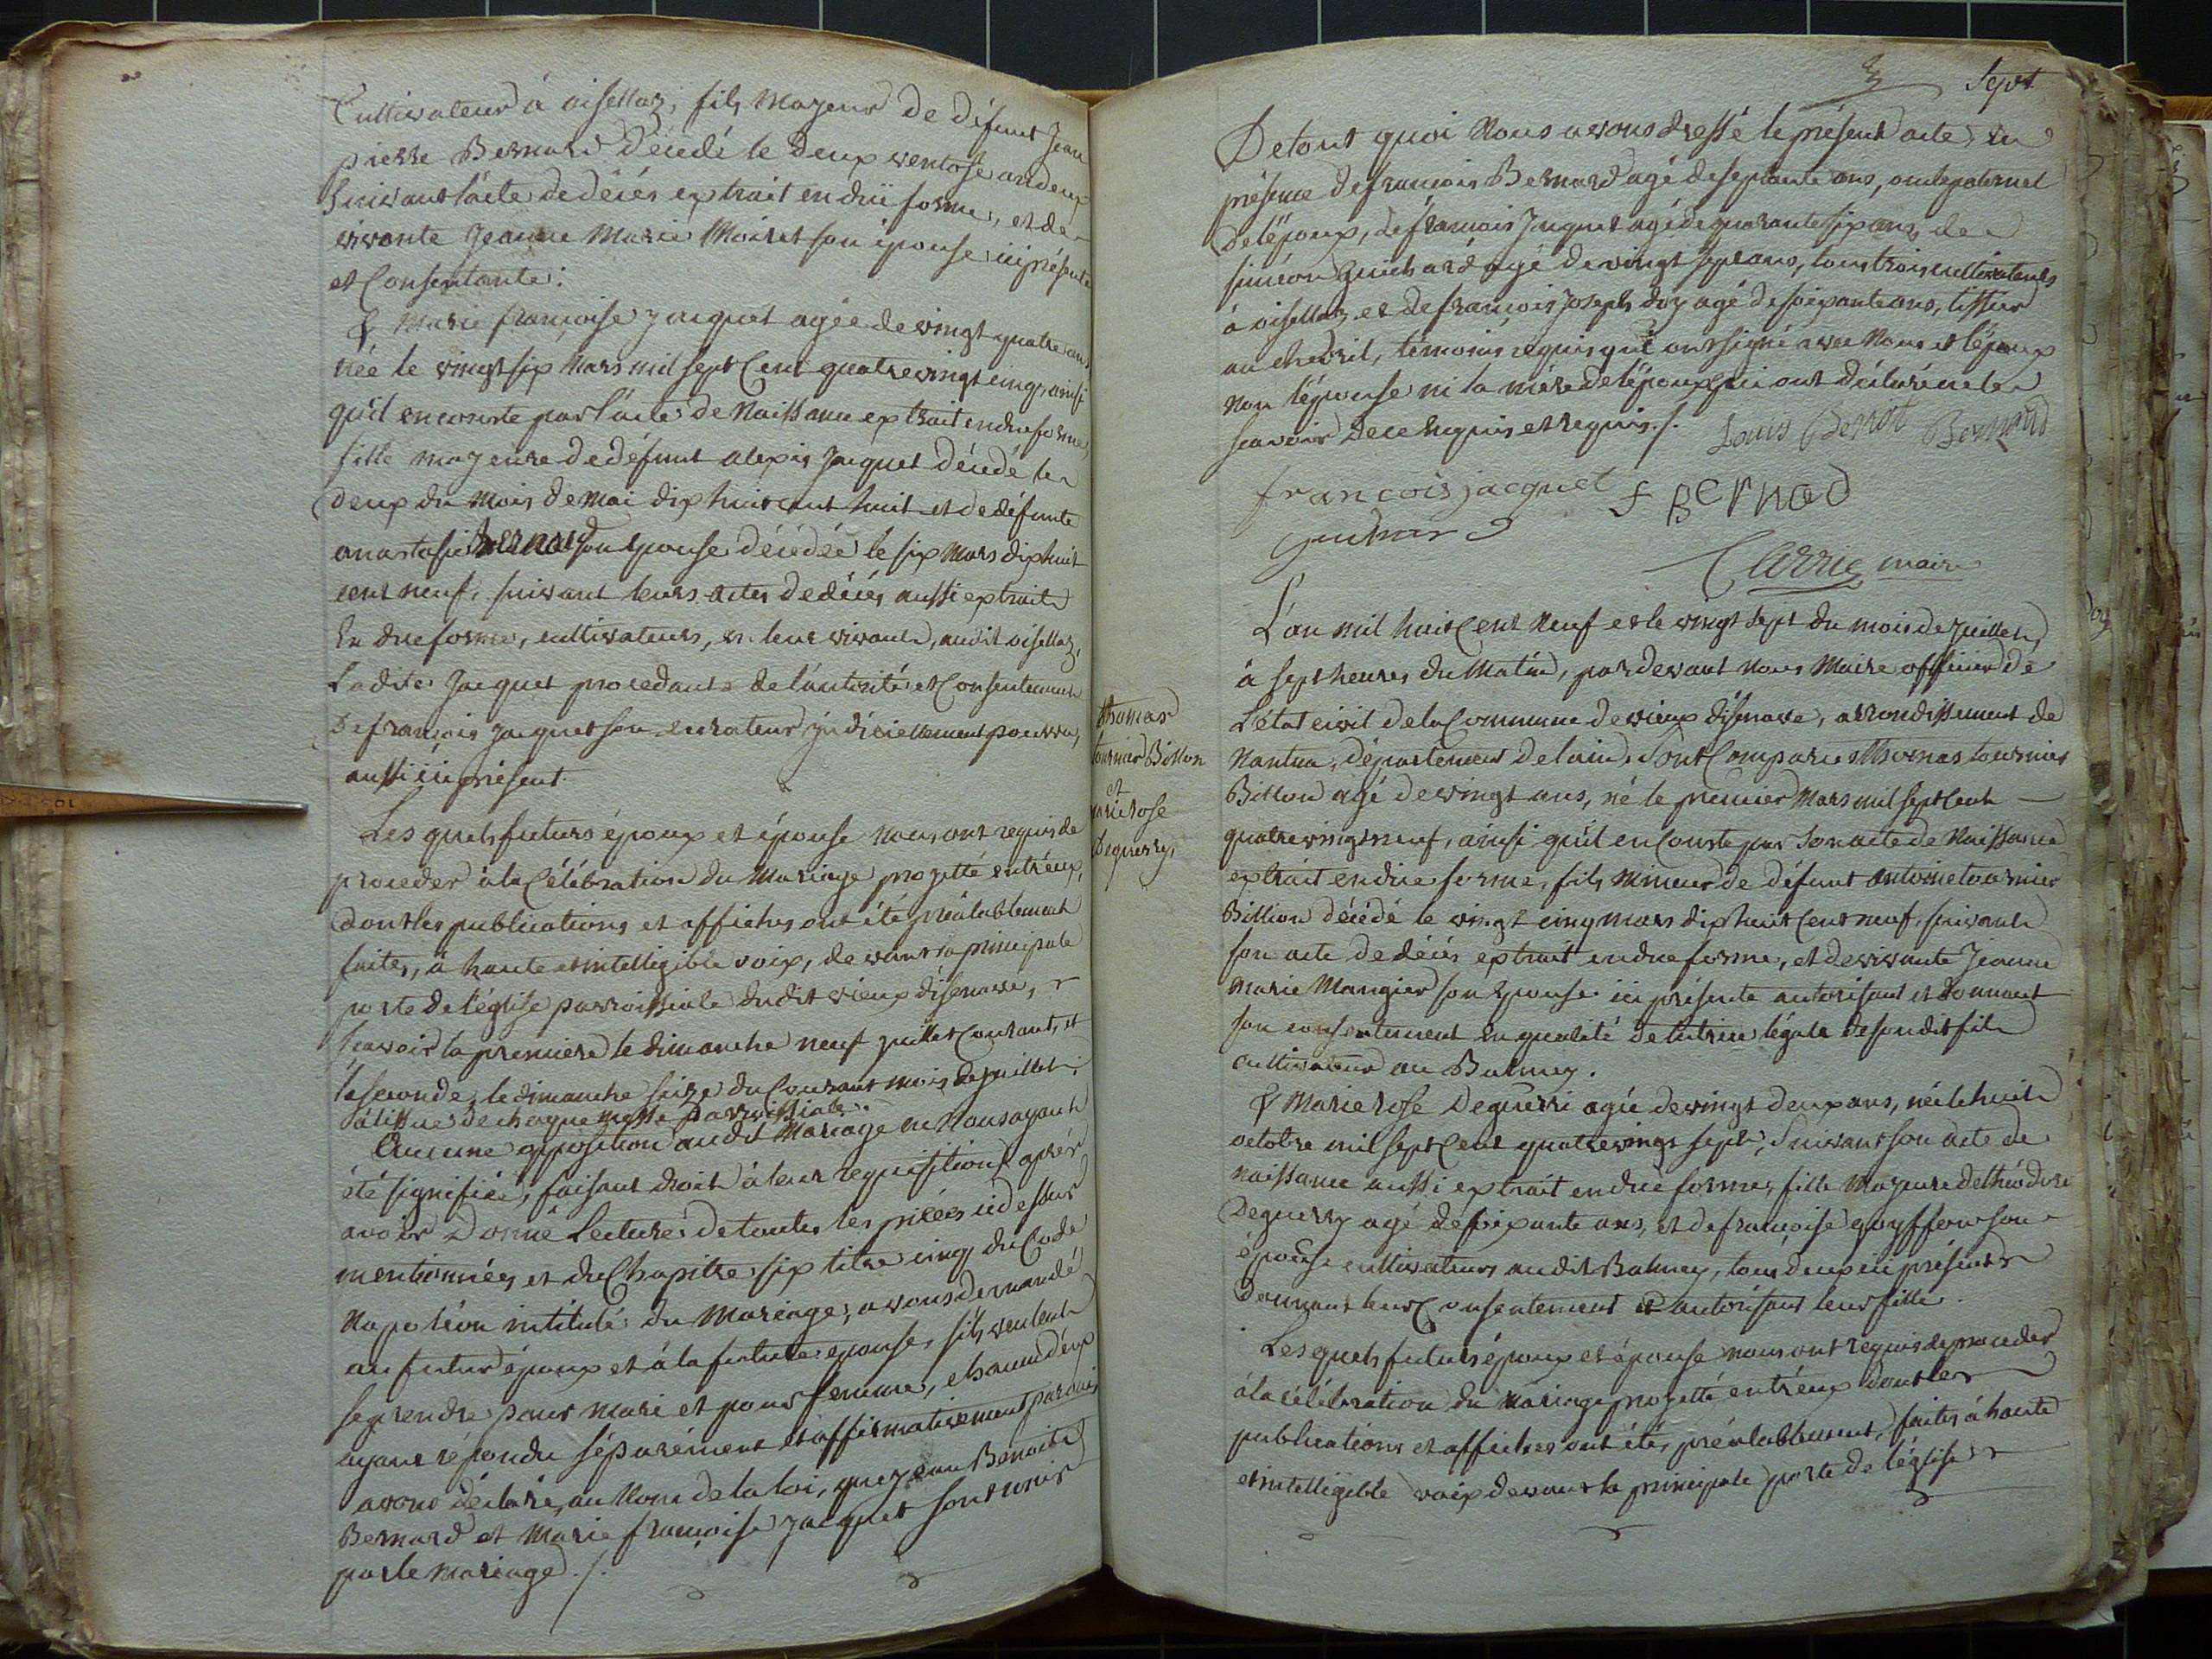 Cultivateur à oisellaz, fils Mayeur de défunt Jean
pierre Bernard décédé le deux ventose an deux
Suivant l'acte de décés extrait en düe forme, et de
vivante Jeanne Marie Moiret son épouse ici présente
et Consentante.
& Marie françoise Jacquet agée de vingt quatre ans
née le vingt six Mars mil sept Cent quatre vingt cinq, ainsi
qu'il en conste par l'acte de Naissance extrait en due forme,
fille mayeure de défunt alexis Jacquet décédé le
deux du Mois de Mai dix huit cent huit et de défunte
anastasie Bernard son épouse décédée le six Mars dix huit
cent neuf, suivant leurs actes de décés aussi extraits
En due forme, cultivateurs, en leur vivant, audit oisellaz,
Ladite Jacquet procedant de l'autorité et Consentement
De françois Jacquet son curateur judiciellement pourvu,
aussi ici présent.
Les quels futurs époux et épouse Nous ont requis de
proceder à la Célébration du Mariage projetté entr'eux,
dont les publications et affiches ont été préalablement
faites, à haute et intelligible voix, devant la principale
porte de l'église parroissiale dudit vieux d'isenave,
scavoir la premiere le dimanche neuf juillet Courant, et
la seconde, le dimanche seize du Courant mois de juillet
à l'issue de chaque messe parroissiale.
Aucune opposition audit Mariage ne Nous ayant
été signifiée, faisant droit à leur requisition après
avoir Donné Lecture de toutes les piéces ci dessus
mentionnées et du Chapitre six titre cinq du Code
Napoléon intitulé du Mariage, avons demandé
au futur époux et à la future épouse, s'ils veulent
se prendre pour Mari et pour femme, chacun d'eux
ayant répondu séparément et affirmativement
avons déclaré, au Nom de la loi, que jean Benoit
Bernard et Marie françoise Jacquet sont unis
par le mariage ./.
Sept
De tout quoi Nous avons dressé le présent acte en
présence de françois Bernard agé de septante ans, oncle paternel
de l'époux, de françois Jacquet agé de quarante six ans, de
siméon Guichard agé de vingt sept ans, tous trois cultivateurs
à oisellaz, et de françois Joseph doy agé de soixante ans, tissier
au chevril, témoins requis qui ont signé avec Nous et l'époux
non l'épouse ni la mére de l'époux qui ont déclaré ne le
scavoir de ce enquis et requis ./. Louis Benoit Bernard
francois jacquet f BerNaD
guichard
Carrie maire
L'an mil huit Cent Neuf et le vingt sept du mois de juillet
à sept heures du Matin, par devant Nous Maire officier de
L'état civil de la Commune de vieux d'isenave, arrondissement de
Nantua, département de l'ain, Sont Comparu Thomas tournier
Billon agé de vingt ans, né le premier Mars mil sept Cent
quatre vingt neuf, ainsi qu'il en Conste par Son acte de Naissance
extrait en due forme, fils Mineur de défunt antoine tournier
Billion décédé le vingt cinq mars dix huit Cent neuf, suivant
son acte de décés extrait en due forme, et de vivante Jeanne
Marie Mangier son épouse ici présente autorisant et donnant
son consentement en qualité de tutrice légale de son dit fils
cultivateur au Balmey.
& Marie rose Deguerri agée de vingt deux ans, née le huit
octobre mil sept Cent quatre vingt sept, Suivant son acte de
naissance aussi extrait en due forme, fille Mayeure de théodore
Deguerry agé de soixante ans, et de françoise goyffon son
épouse cultivateurs audit Balmey, tous deux ici présents
Donnant leur Consentement et autorisant leur fille.
Les quels futurs époux et épouse nous ont requis de proceder
à la célébration du Mariage projetté entr'eux dont les
publications et affiches ont été, préalablement, faites à haute
et intelligible voix devant la principale porte de l'église
thomas
tournier Billon
et
marie rose
Deguerry,